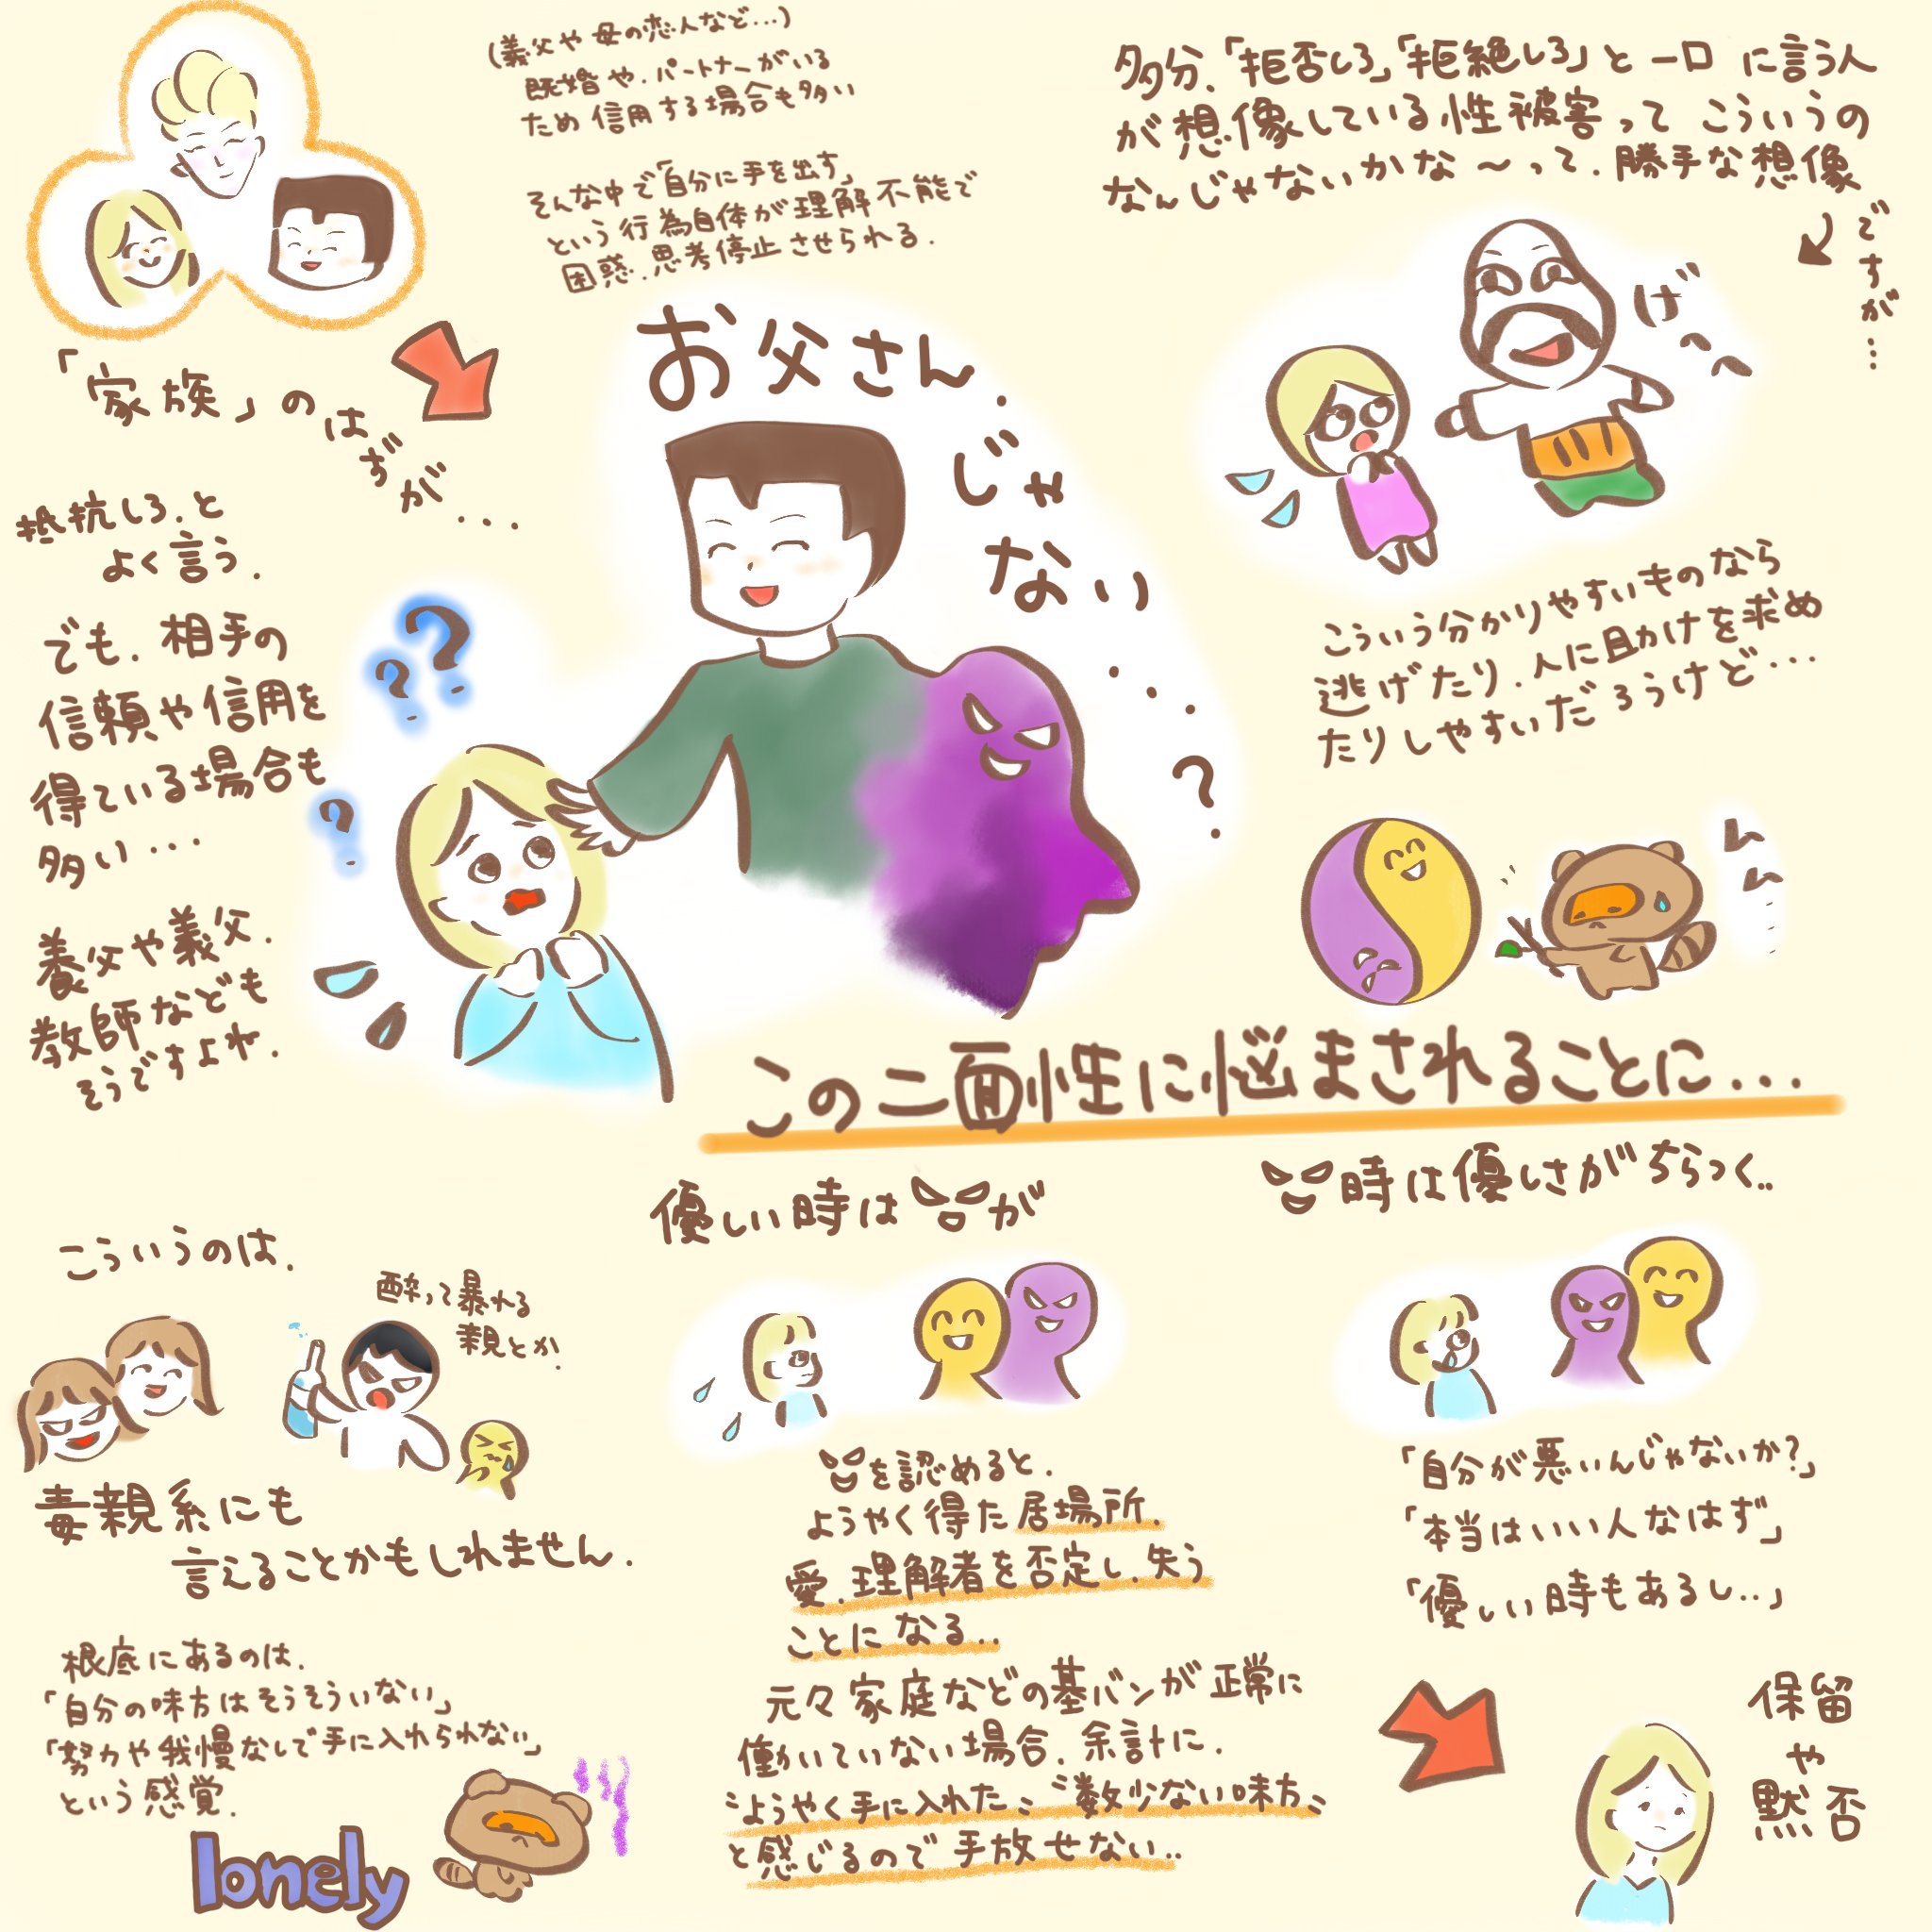 (義父や母の恋人など...)
既婚や、パートナーがいる
ため信用する場合も多い
そんな中で「自分に手を出す」
という行為自体が理解不能で
困惑、思考停止させられる。
「家族」のはずが...
お父さん、じゃない....?
抵抗しろ、と
よく言う。
でも、相手の
信頼や信用を
得ている場合も
多い...
養父や義父、
教師なども
そうですよね。
多分、「拒否しろ」「拒絶しろ」と一口に言う人
が想像している性被害って こういうの
なんじゃないかな〜って、勝手な想像
ですが...
げへへ
こういう分かりやすいものなら
逃げたり、人に助けを求め
たりしやすいだろうけど...
ムムム...
この二面性に悩まされることに...
優しい時は が
時は優しさがちらつく..
こういうのは、
酔って暴れる
親とか、
毒親系にも
言えることかもしれません。
根底にあるのは、
「自分の味方はそうそういない」
「努力や我慢なしで手に入れられない」
という感覚。
lonely
を認めると、
ようやく得た居場所、
愛、理解者を否定し、失う
ことになる..
元々家庭などの基バンが正常に
働いていない場合、余計に、
〝ようやく手に入れた〟〝数少ない味方〟
と感じるので手放せない..
「自分が悪いんじゃないか?」
「本当はいい人なはず」
「優しい時もあるし..」
保留
や
黙否